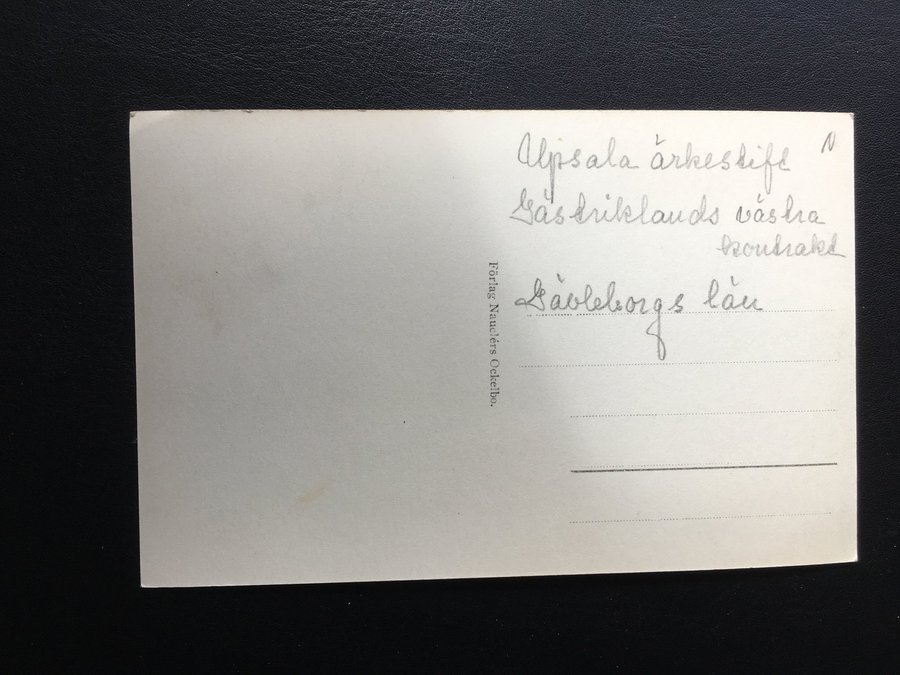 N
Upsala ärkestift
Gästriklands västra
kontrakt
Gävleborgs län
Förlag Nauclérs Ockelbo.